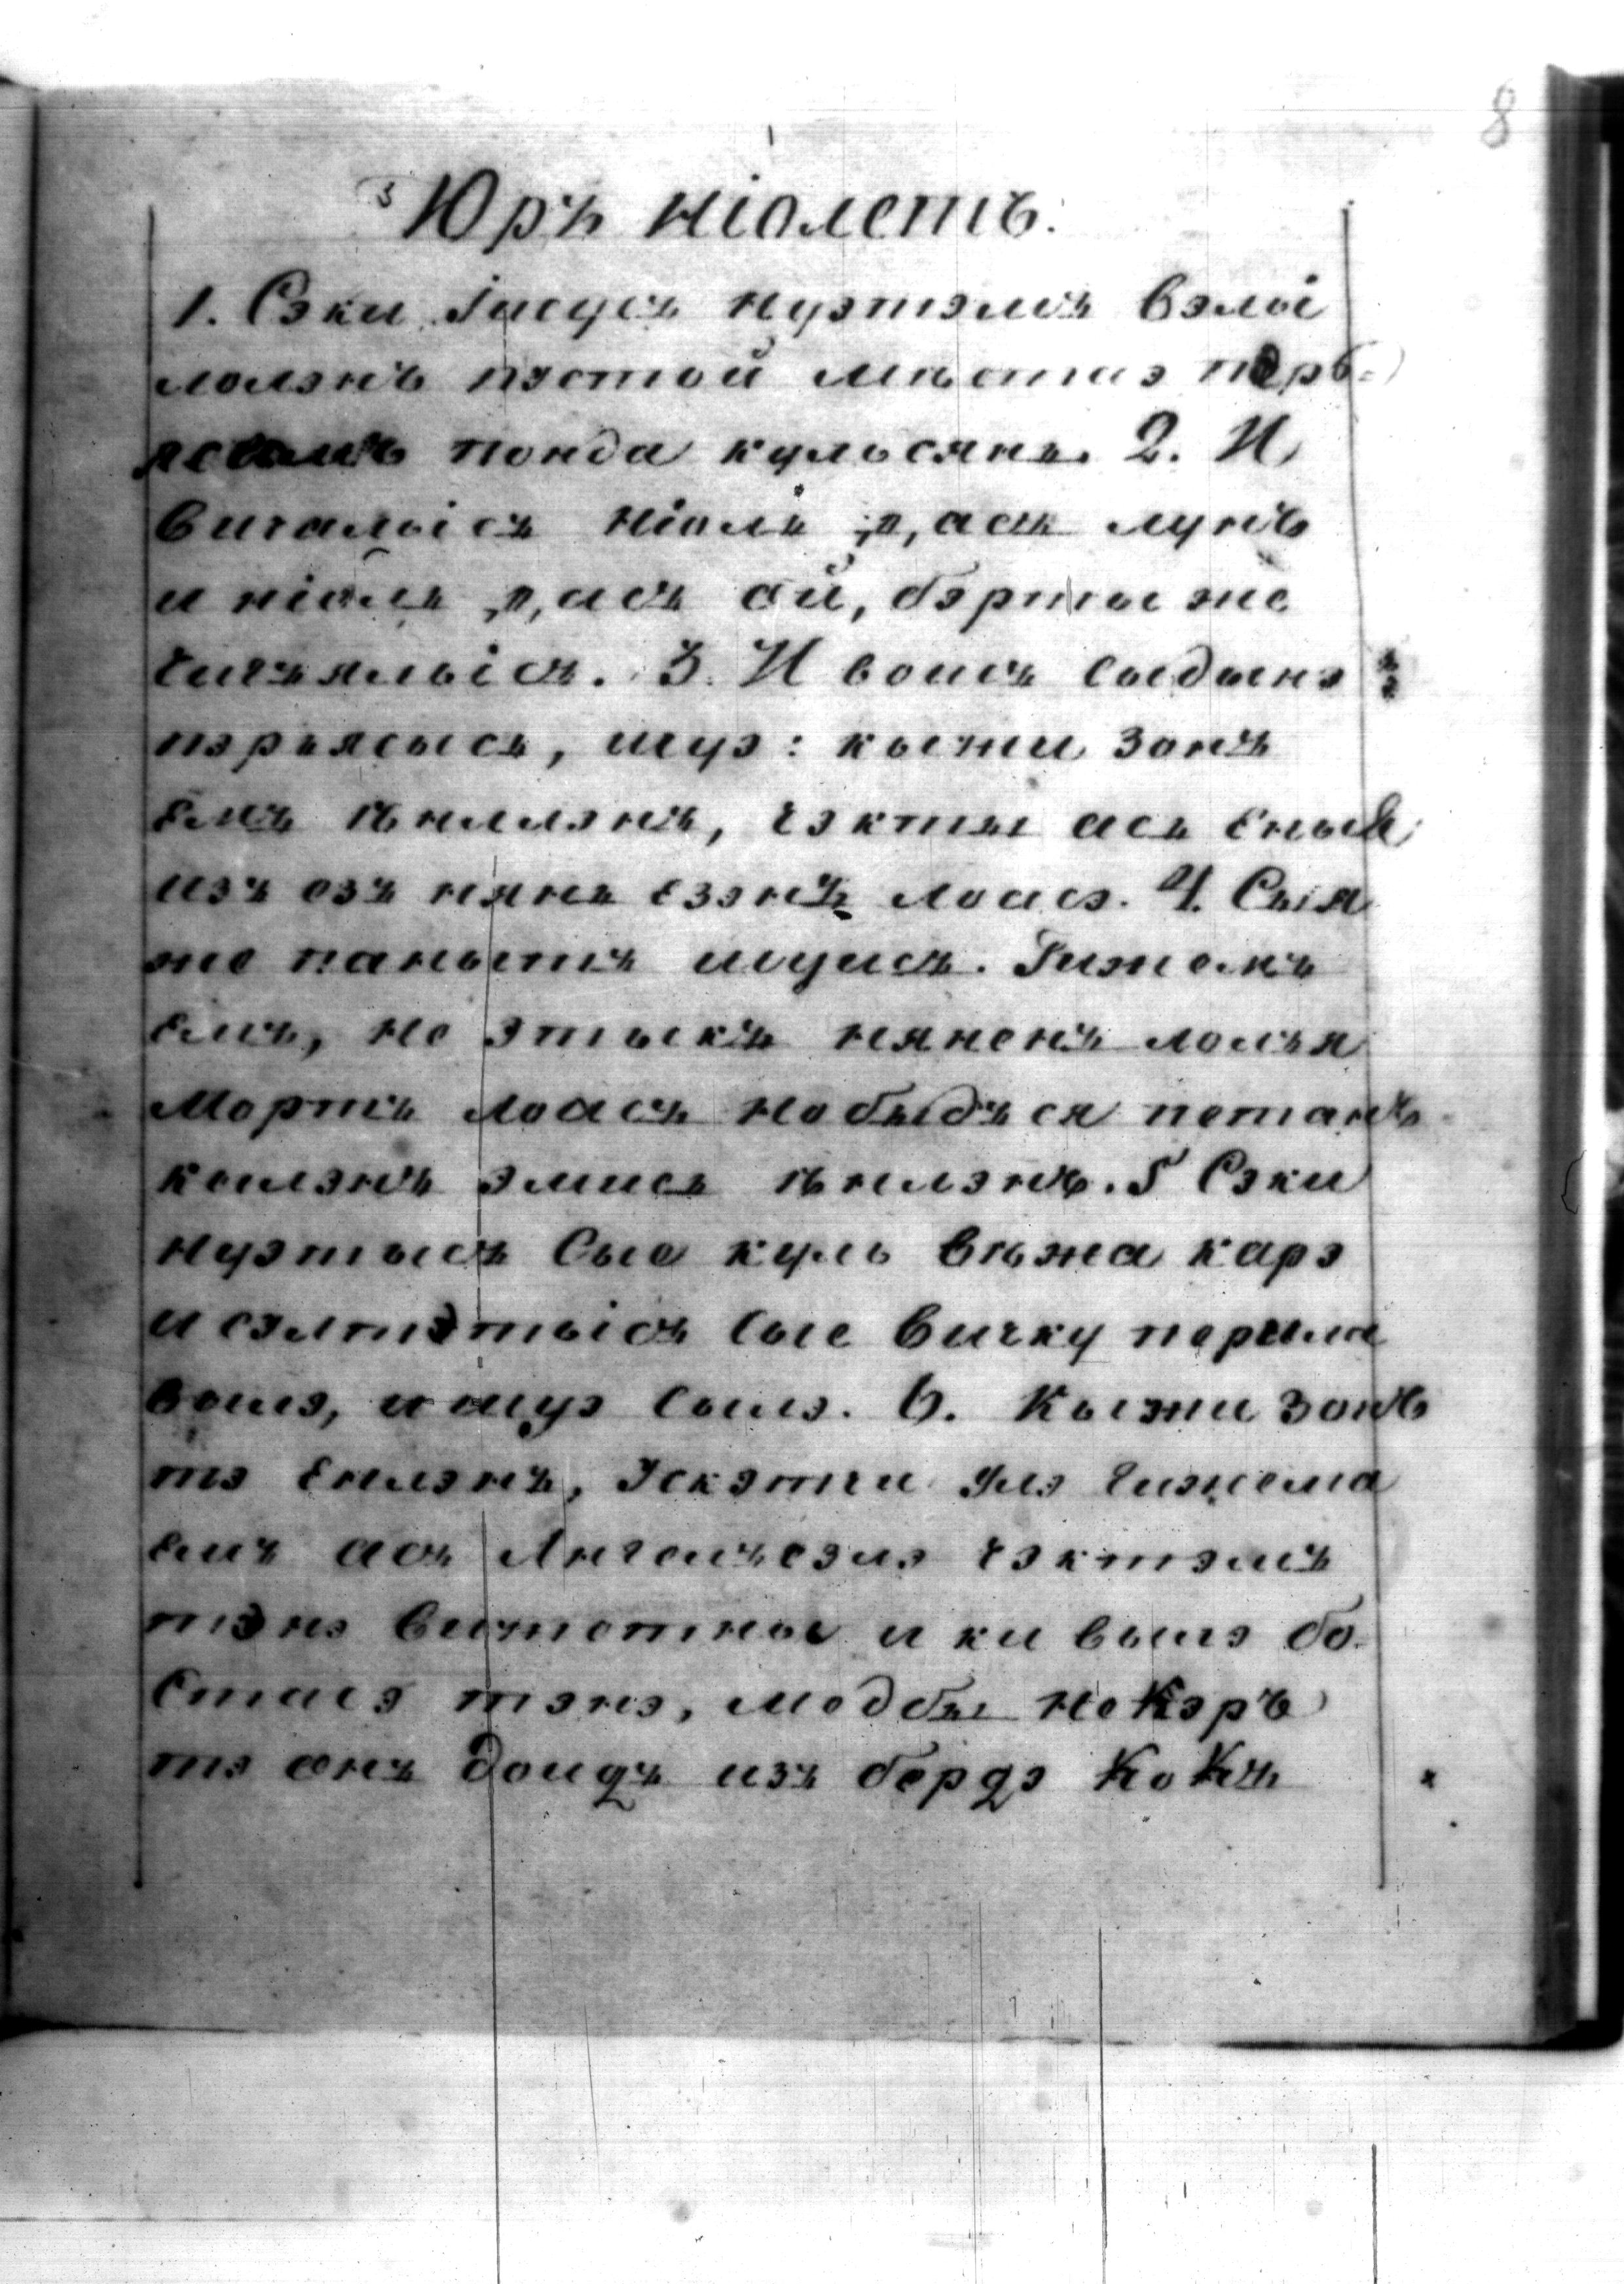 8
Юръ ніолетъ.
1. Сэки Іисусъ нуэтэмъ вэлі
лолэнъ пэстой мѣстаэ пэръ=
понда кульсянь. 2. И
вичалысъ ніоль д,асъ лунъ
и ніоль д,асъ ой, бэрты же
чигялысъ. 3. И воисъ сыдынэ
пэръясысь, шуэ: кыжи зонъ
емъ Іенллэнъ, чэкты ась
изъ эзъ нянь езэнъ лоасэ. 4. Сыя
же паныть шуисъ. Гижемъ
емъ, не этыкъ няненъ ломъя
мортъ лоасъ но быдъся петанъ
кылэнъ эмись Іенлэнъ. 5 Сэки
нуэтысъ сые куль вѣжа карэ
и сэлтэтысъ сые вичку
вылэ, и шуэ сылэ. 6. Кыжи зонъ
тэ Енлэнъ, Усkэтчи улэ гижема
емъ асъ Ангелъезлэ чэктэмъ
тэнэ видзотны и ки вылэ бо-
стасэ тэнэ, медбы некэръ
тэ онъ доидъ изъ бердэ кокъ